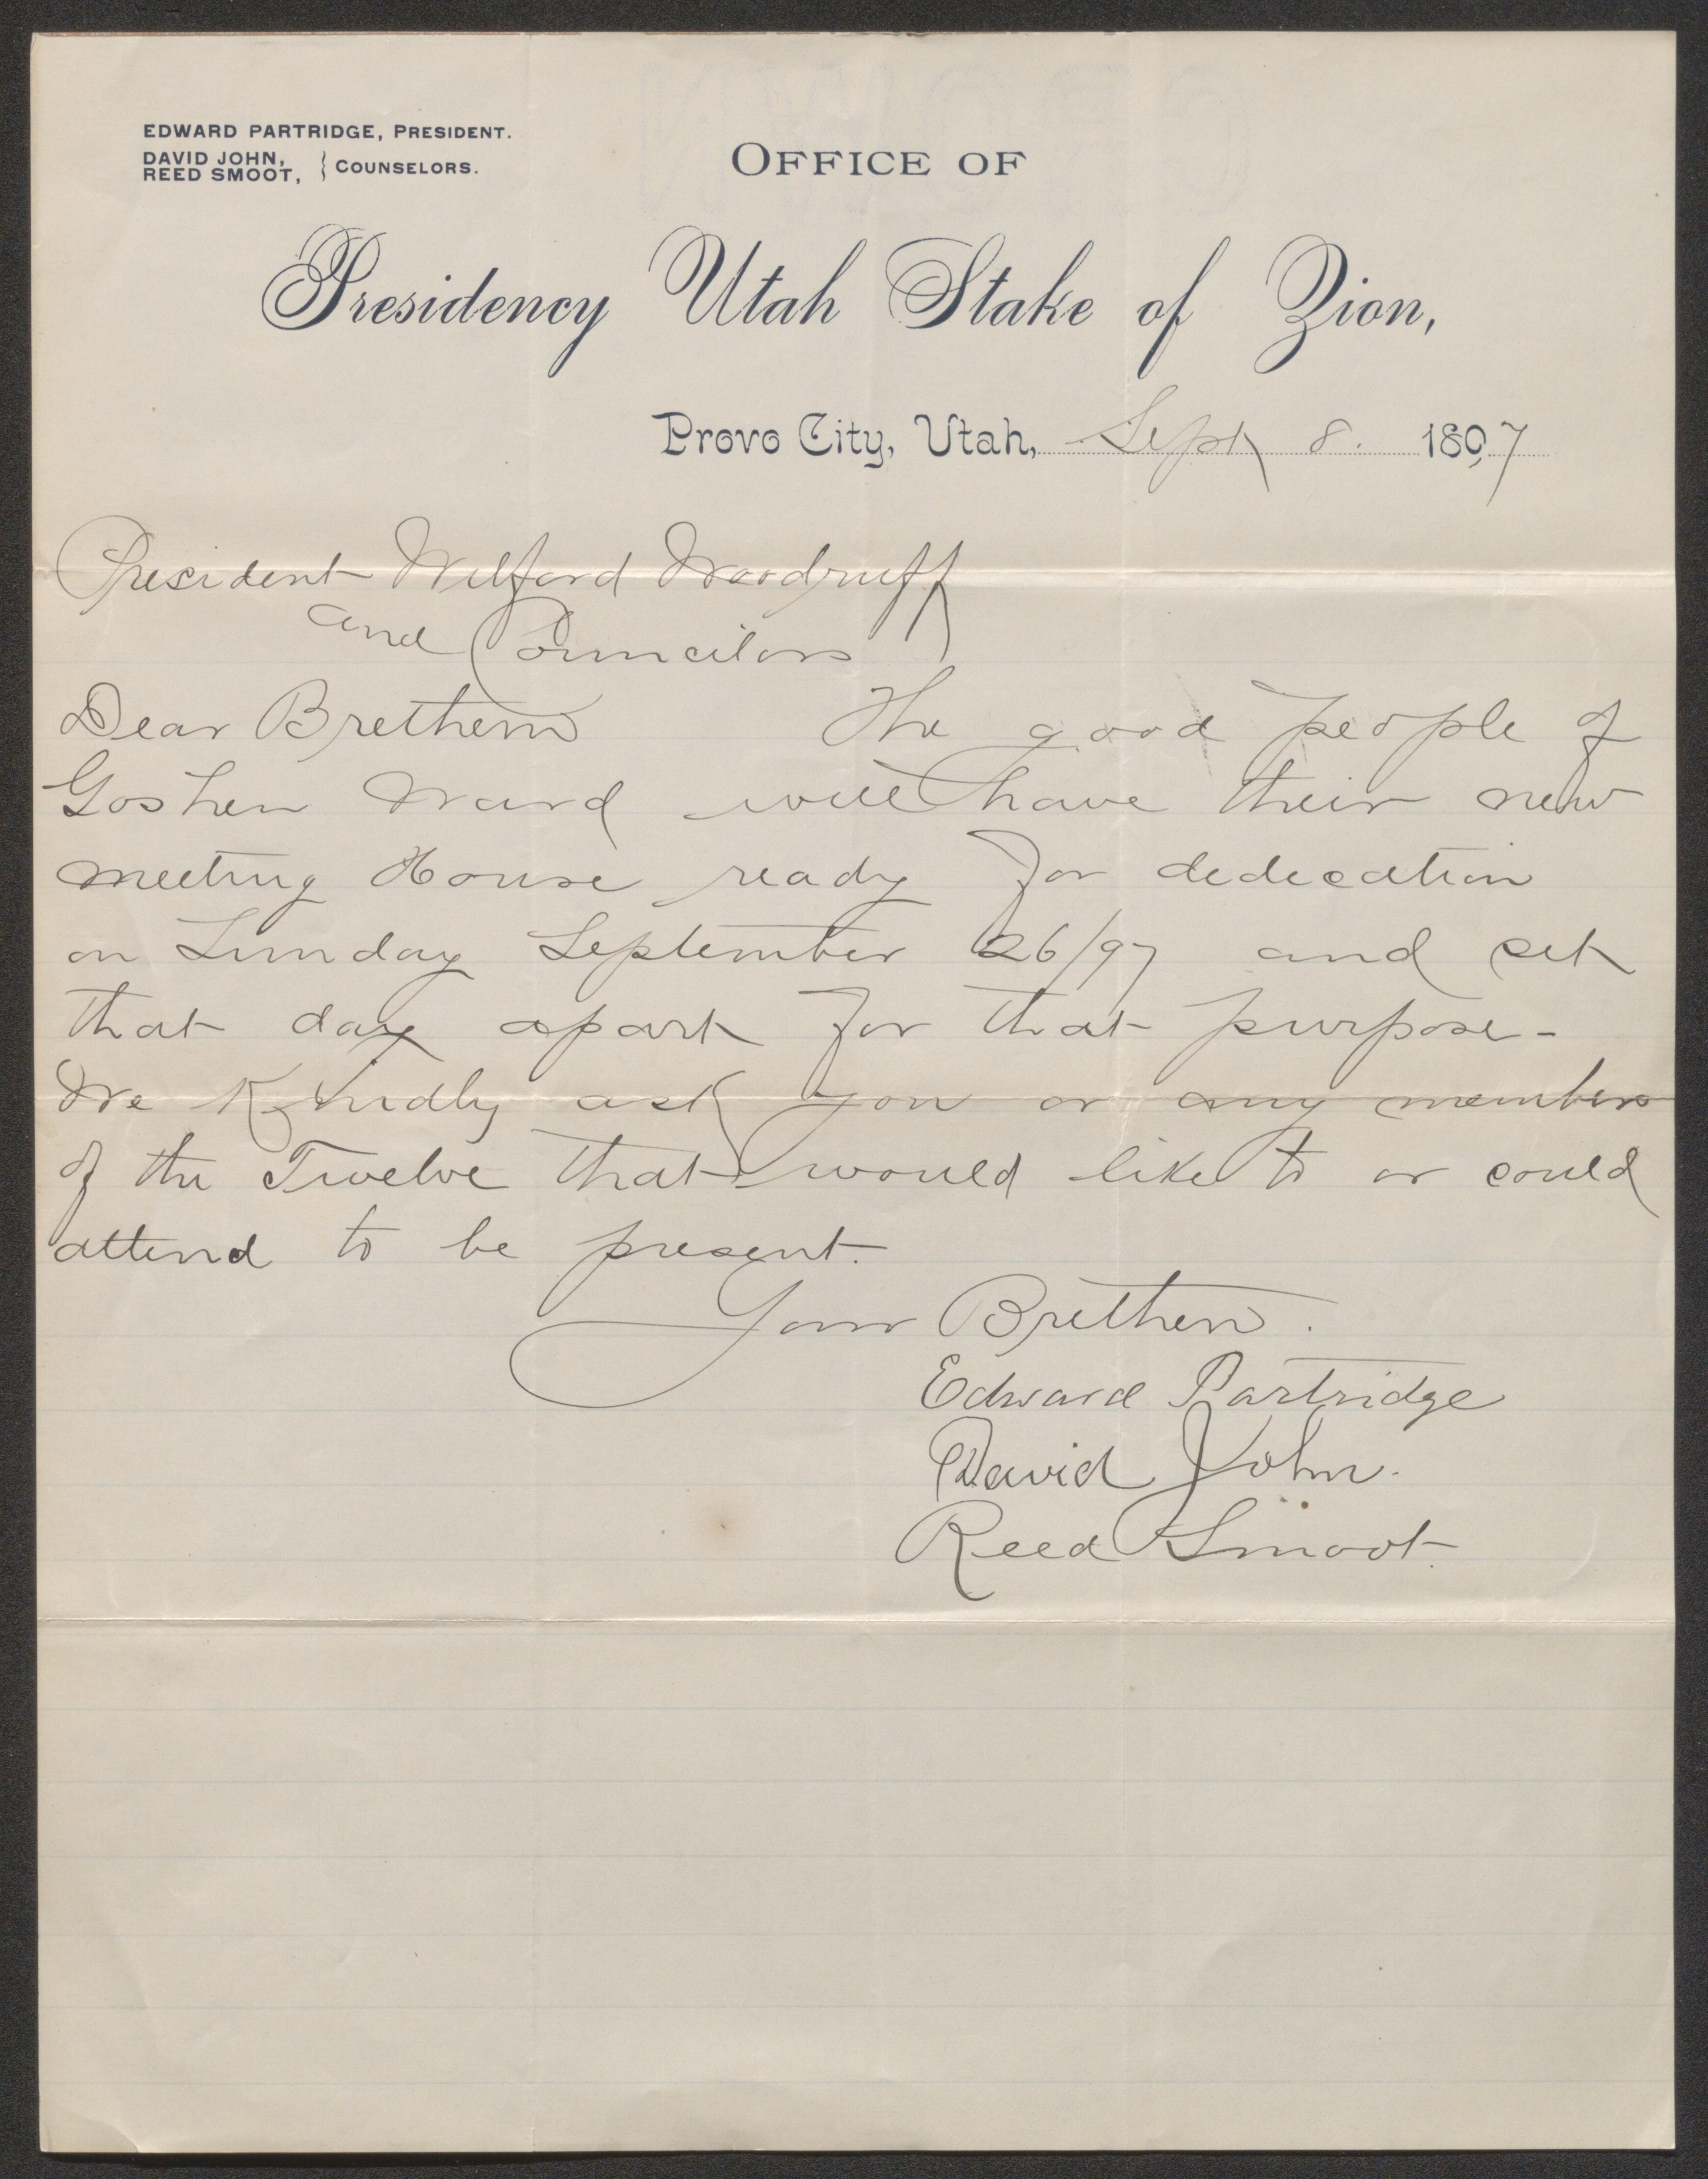 EDWARD PARTRIDGE, PRESIDENT.
DAVID JOHN,
REED SMOOT, } COUNSELORS.
OFFICE OF
Presidency Utah Stake of Zion,
Provo City, Utah, Sept 8. 1897
President Wilford Woodruff
and Councilors
Dear Brethern The good people of
Goshen Ward will have their new
meeting House ready for dedication
on Sunday September 26/97 and set
that day apart for that purpose-
We Kindly ask you or any members
of the Twelve that would like to or could
attend to be present.
Your Brethern.
Edward Partridge
David John.
Reed Smoot.